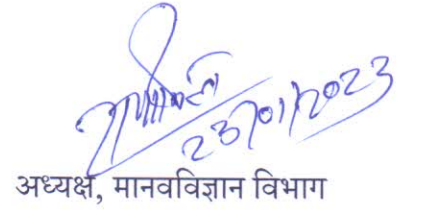 23/01/2023
अध्यक्ष, मानवविज्ञान विभाग